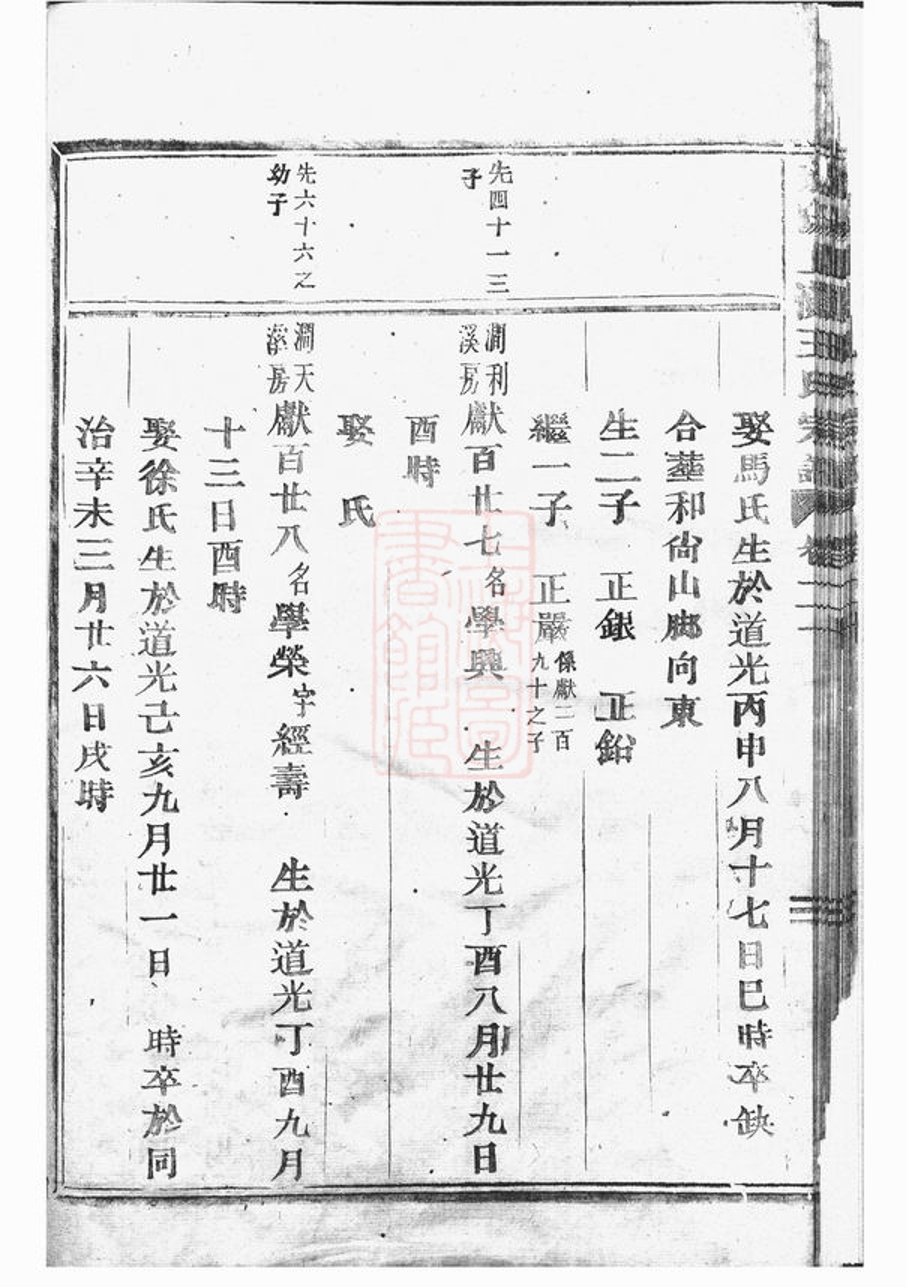 娶馬氏生於道光丙申八月十七日巳時卒缺
合塟和尙山脚向東
生二子 正銀 正鉛
繼一子 正嚴 係獻二百九十之子
先四十一三子
澗溪利房獻百廿七名學興 生於道光丁酉八月廿九日
酉時
娶 氏
先六十六之幼子
澗溪天房獻百廿八名學榮字經壽 生於道光丁酉九月
十三日酉時
娶徐氏生於道光己亥九月廿一日 時卒於同
治辛未三月廿六日戌時